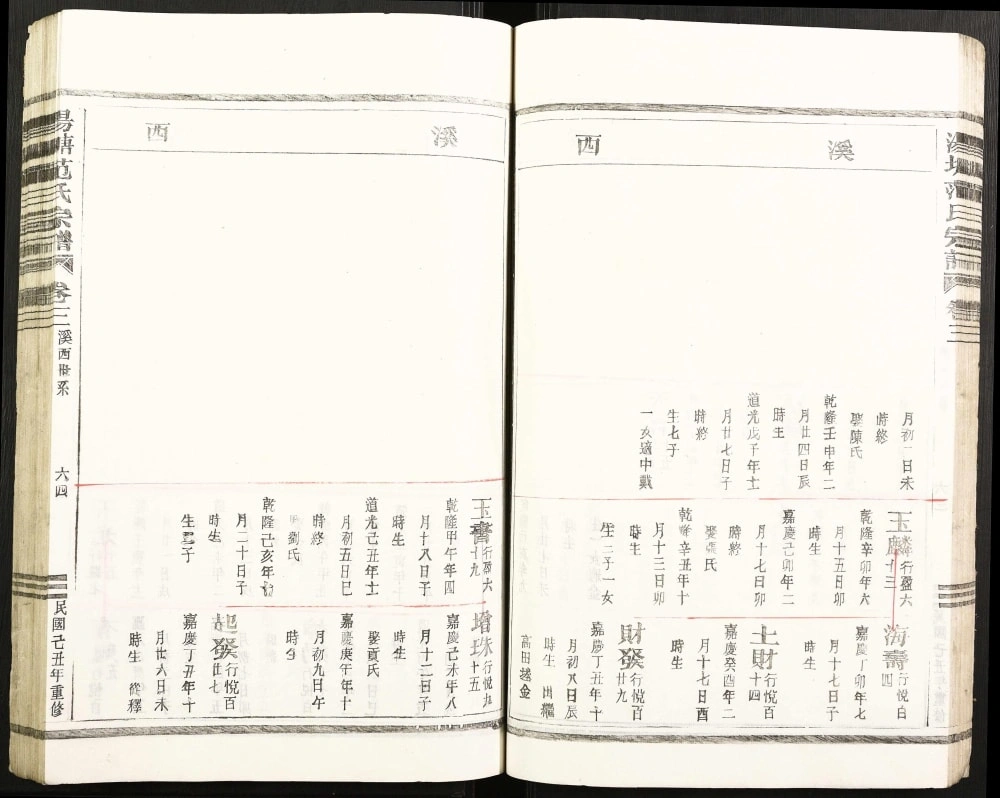 溪
西
月初一日未
時終
娶陳氏
乾隆壬申年二
月廿四日辰
時生
道光戊子年十二
月廿七日子
時終
生七子
一女適中戴
玉麟行盈六
乾隆辛卯年六
月十五日卯
時生
嘉慶己卯年二
月十七日卯
時終
娶張氏
乾隆辛丑年十
月十二日卯
時生
生三子一女
海壽行悅百
四
嘉慶丁卯年七
月十七日子
時生
土財行悅百
十四
嘉慶癸酉年二
月十七日酉
時生
財發行悅百
廿九
嘉慶丁丑年十
月初八日辰
時生 出繼
高田越金
溪
西
行盈六
十九
乾隆甲午年四
月十八日子
時生
道光己丑年十二
月初五日巳
時終
劉氏
乾隆己亥年
月二十日子
時生
生子
增珠行悅九
十五
嘉慶己未年八
月十二日子
時生
娶貢氏
嘉慶庚午年十
月初九日午
時
發行悅百
廿七
嘉慶丁丑年十
月廿六日未
時生 從釋
湯塘范氏宗譜
卷三
溪西世系
六四
民國己丑年重修